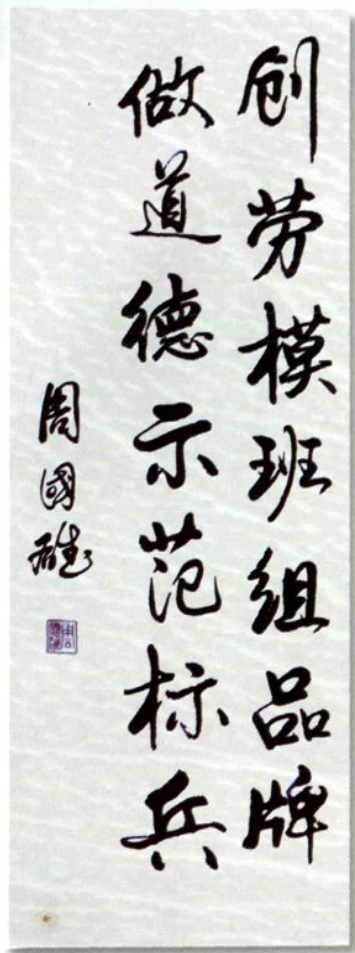 创劳模班组品牌
做道德示范标兵
周國雄